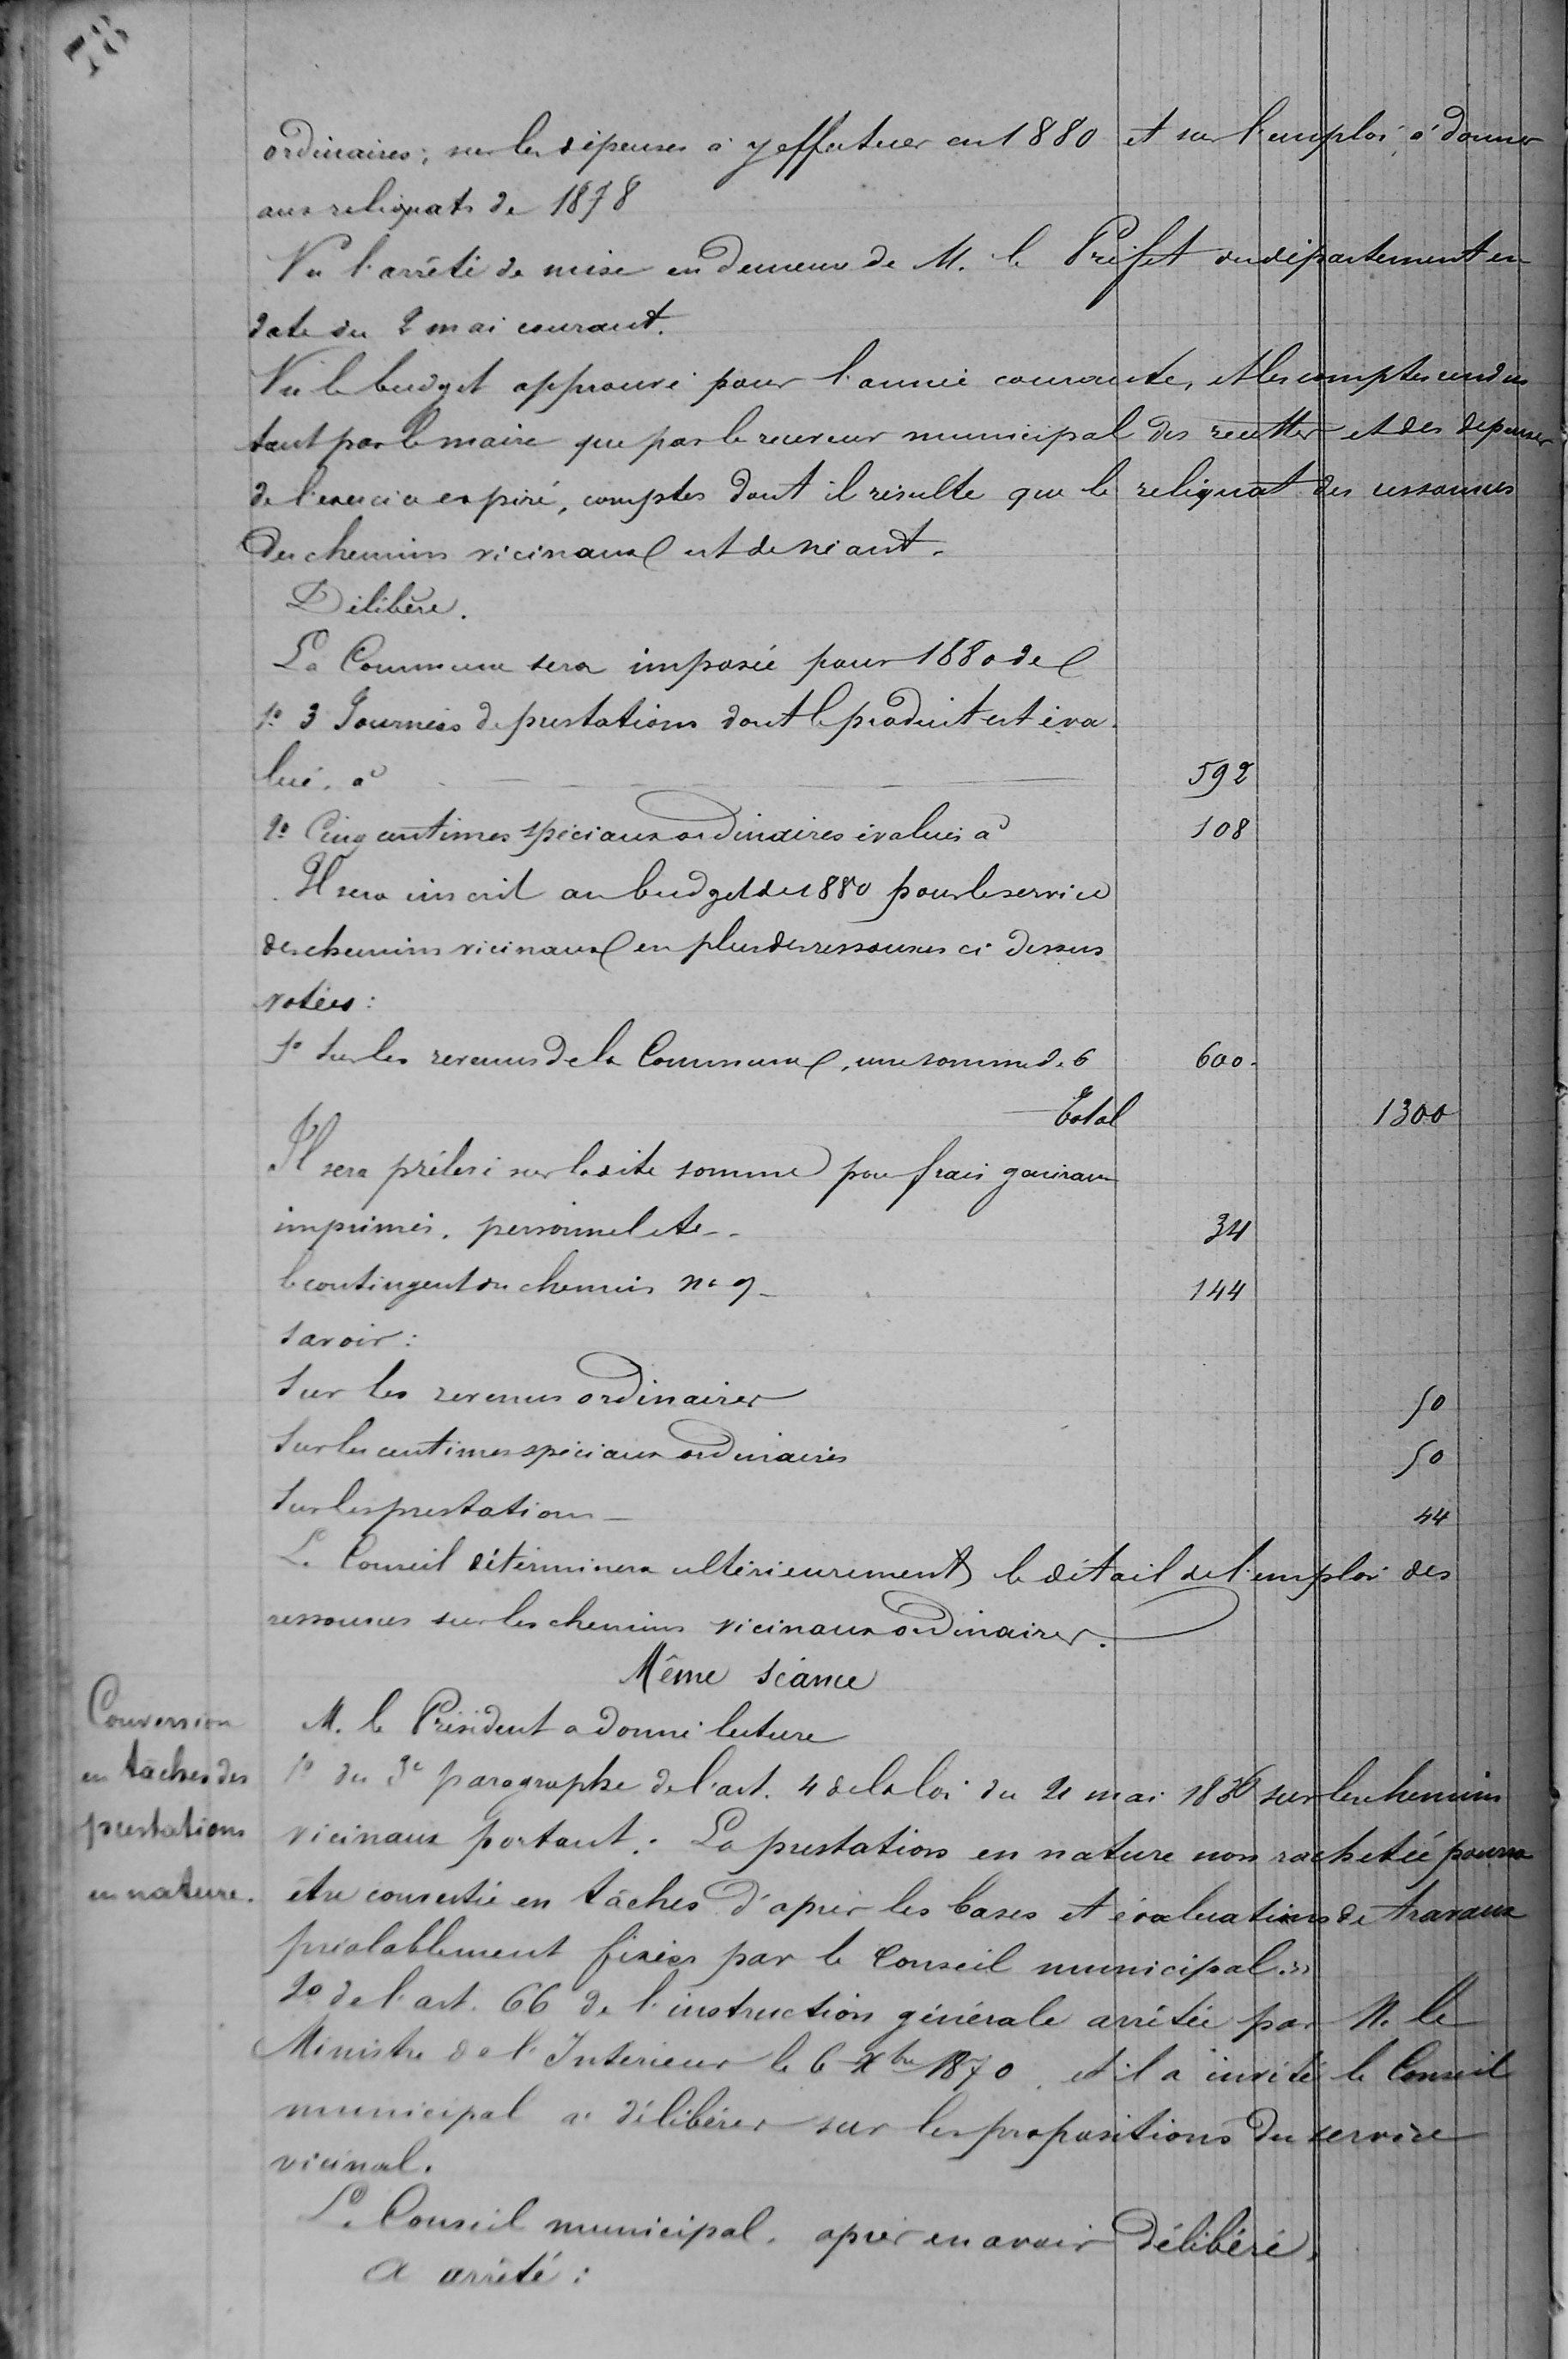 78
ordinaires; sur les dépenses à y effectuer en 1880 et sur l'emploi à donner
aux reliquats de 1878
Vu l'arrêté de mise en demeure de M. le Préfet du département en
date du 2 mai courant.
Vu le budget approuvé pour l'année courante, et les comptes rendus
tant par le maire que par le receveur municipal des recettes et des dépenses
de l'exercice expiré, comptes dont il résulte que le reliquat des ressources
des chemins vicinaux est de néant.
Délibère.
La Commune sera imposée pour 1880 de
1º 3 Journées de prestations dont le produit est éva-
lué, à 592
2º Cinq centimes spéciaux ordinaires évalués à 108
Il sera inscrit au budget de 1880 pour le service
des chemins vicinaux en plus des ressources ci dessus
votées:
1º Sur les revenus de la Commune, une somme de 6 600.
Total 1300
Il sera prélevé sur ladite somme pour frais généraux
imprimés, personnel etc.. 34
le contingent du chemin nº 9 144
Savoir:
Sur les revenus ordinaires 50
Sur les centimes spéciaux ordinaires 50
Sur les prestations 44
Le Conseil déterminera ultérieurement le détail de l'emploi des
ressources sur les chemins vicinaux ordinaires.
Même séance
Conversion
en tâches des
prestations
en nature.
M. le Président a donné lecture
1º du 3e paragraphe de l'art. 4 de la loi du 21 mai 1836 sur les chemins
vicinaux portant: La prestation en nature non rachetée pourra
être convertie en tâches d'après les bases et évaluations de travaux
préalablement fixées par le Conseil municipal.»
2º de l'art. 66 de l'instruction générale arrêtée par M. le
Ministre de l'Intérieur le 6 Xbre 1870, et il a invité le Conseil
municipal à délibérer sur les propositions du service
vicinal.
Le Conseil municipal, après en avoir délibéré,
a arrêté: